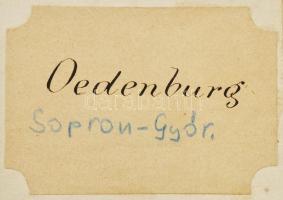 Oedenburg
Sopron-Győr.